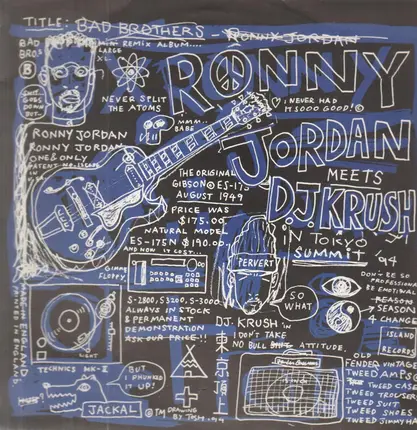 TITLE: BAD BROTHERS - RONNY JORDAN
BAD BROS.
REMIX ALBUM....
LARGE
XL
B
SHIT GOES DOWN BUT-
NEVER SPLIT
THE ATOMS
MMM..
BABE
RONNY
I NEVER HAD
IT SOOO GOOD! ©
JORDAN
MEETS
DJ.KRUSH
IN TOKYO
SUMMIT '94
RONNY JORDAN
RONNY JORDAN
ONE & ONLY
THE ORIGINAL
GIBSON® ES-175
AUGUST 1949
PRICE WAS
$175.00
NATURAL MODEL
ES-175N $190.00
AND NOW IT COST...
Gimme
FLOPPY
S-2800, S3200, S-3000
ALWAYS IN STOCK
& PERMANENT
DEMONSTRATION
ASK OUR PRICE!!
PERVERT
SO
WHAT
DON'T BE SO
PROFESSIONAL
BE EMOTIONAL
REASON
→ SEASON
4 CHANGE
ISLAND
RECORDS
MADE IN ENGLAND
LIGHT
TECHNICS MK-II
BUT
I PHUNKED
IT UP!
JACKAL
© TM DRAWING
BY TOSH. 94
DJ. KRUSH in
I DON'T TAKE
NO BULL SHIT ATTITUDE.
東京サミット
OLD
FENDER VINTAGE
TWEED AMPS©
TWEED CASE
TWEED TROUSER
TWEED SUIT
TWEED SHOES
TWEED JIMMY HA